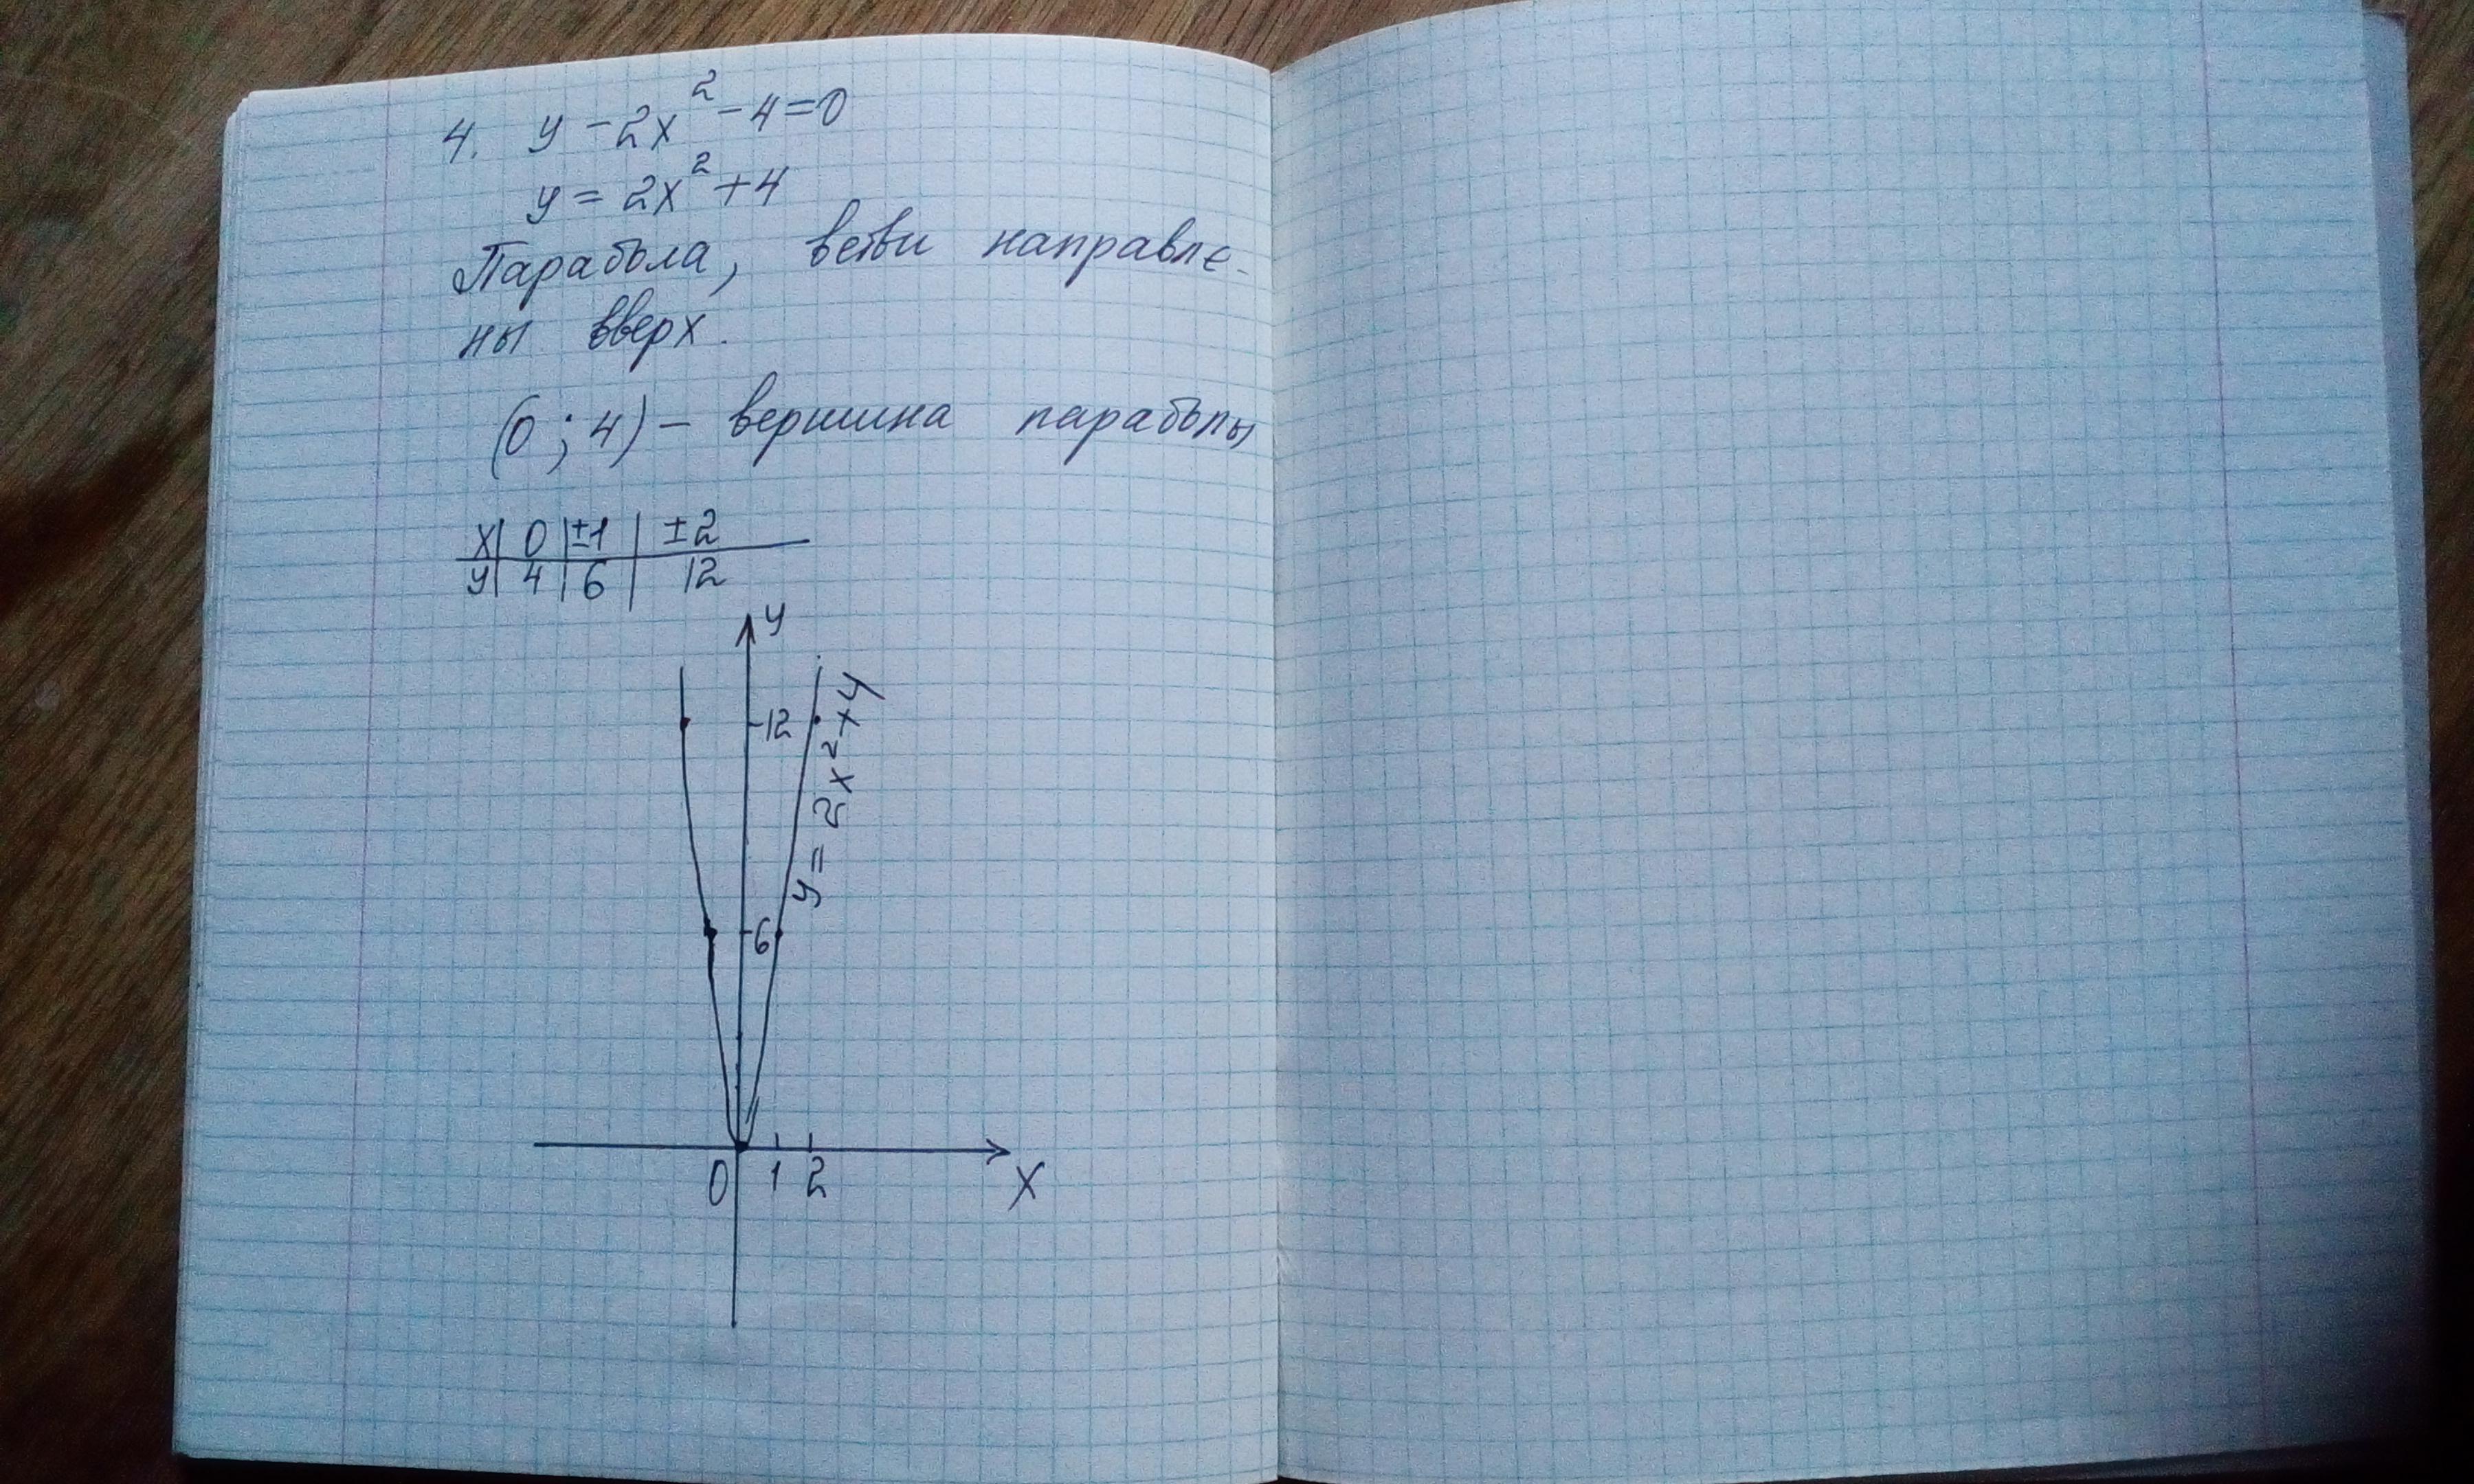 4. y - 2x² - 4 = 0
y = 2x² + 4
Парабола, ветви направле-
ны вверх.
(0 ; 4) - вершина параболы
x | 0 | ±1 | ±2
y | 4 | 6 | 12
y
12
y = 2x² + 4
6
0 1 2 x